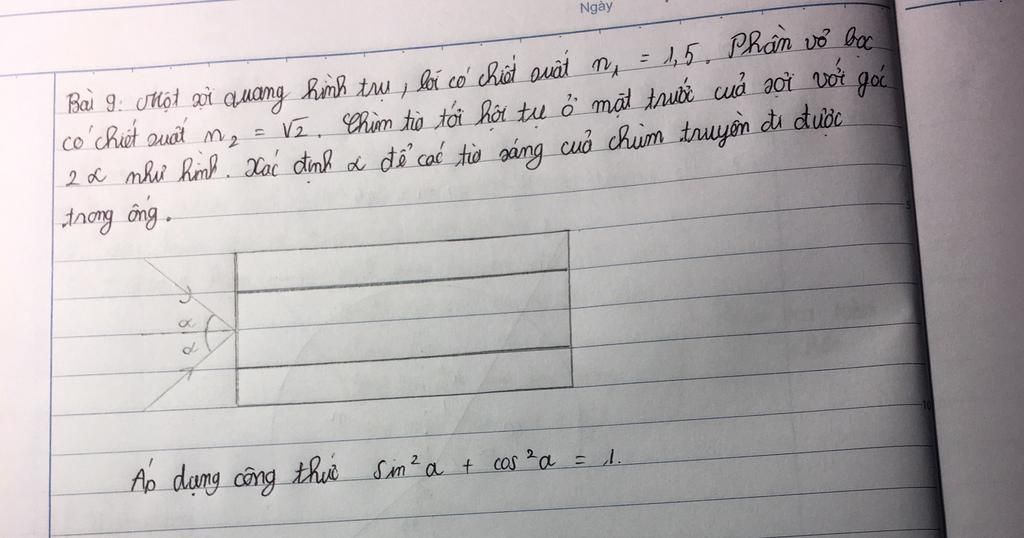 Ngày
Bài 9: Một sợi quang hình trụ, lõi có chiết suất n₁ = 1,5. Phần vỏ bọc
có chiết suất n₂ = √2. Chùm tia tới hội tụ ở mặt trước của sợi với góc
2α như hình. Xác định α để các tia sáng của chùm truyền đi được
trong ống.
α
α
Áp dụng công thức sin²a + cos²a = 1.